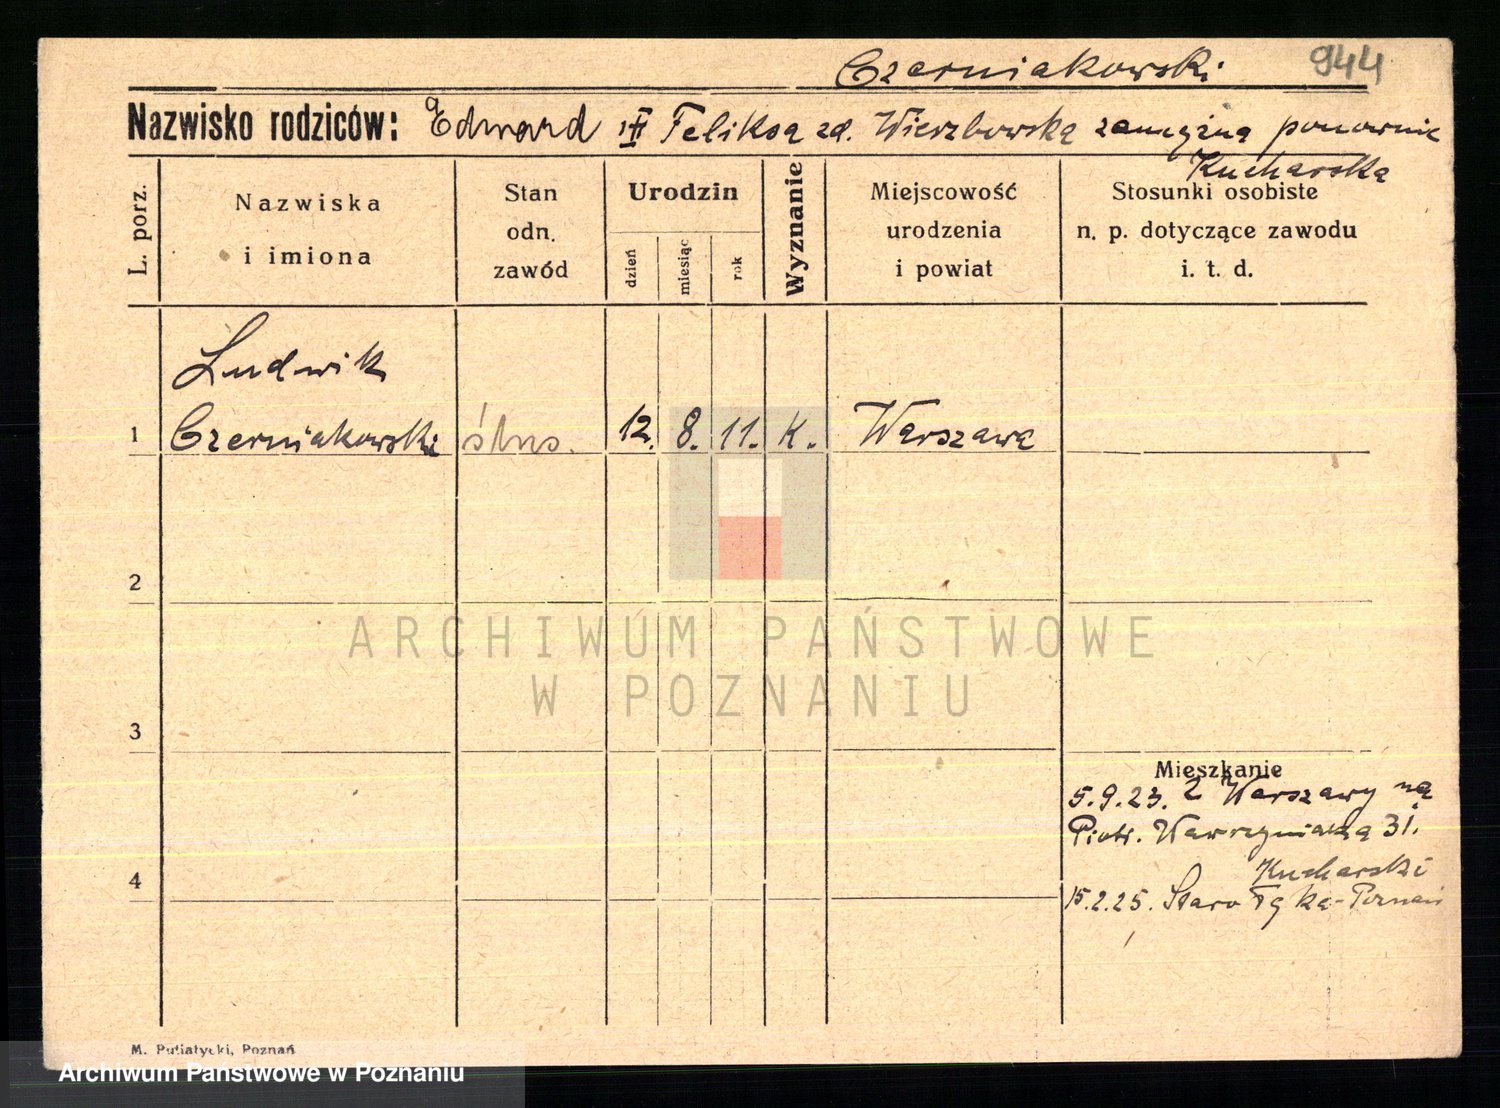 Czerniakowski 944
Nazwisko rodziców: Edward i Feliksa zd. Wierzbowska zamężna ponownie
Kucharska
L. porz.
Nazwiska
i imiona
Stan
odn.
zawód
Urodzin
dzień
miesiąc
rok
Wyznanie
Miejscowość
urodzenia
i powiat
Stosunki osobiste
n. p. dotyczące zawodu
i. t. d.
Ludwik
1 Czerniakowski 12. 8. 11. K. Warszawa
2
3
Mieszkanie
5.9.23. z Warszawy na
Piotr. Wawrzyniaka 31.
Kucharski
4
15.2.25. Staro Poznań
ARCHIWUM PAŃSTWOWE
W POZNANIU
M. Putiatycki, Poznań
Archiwum Państwowe w Poznaniu